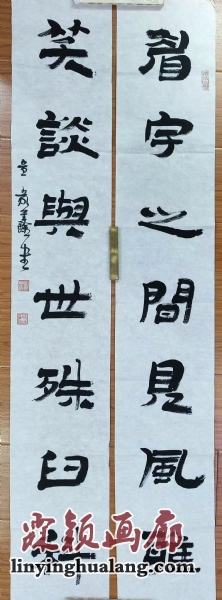 眉宇之間見風雅
笑談與世殊臼
颖画廊
linyinghualang.com